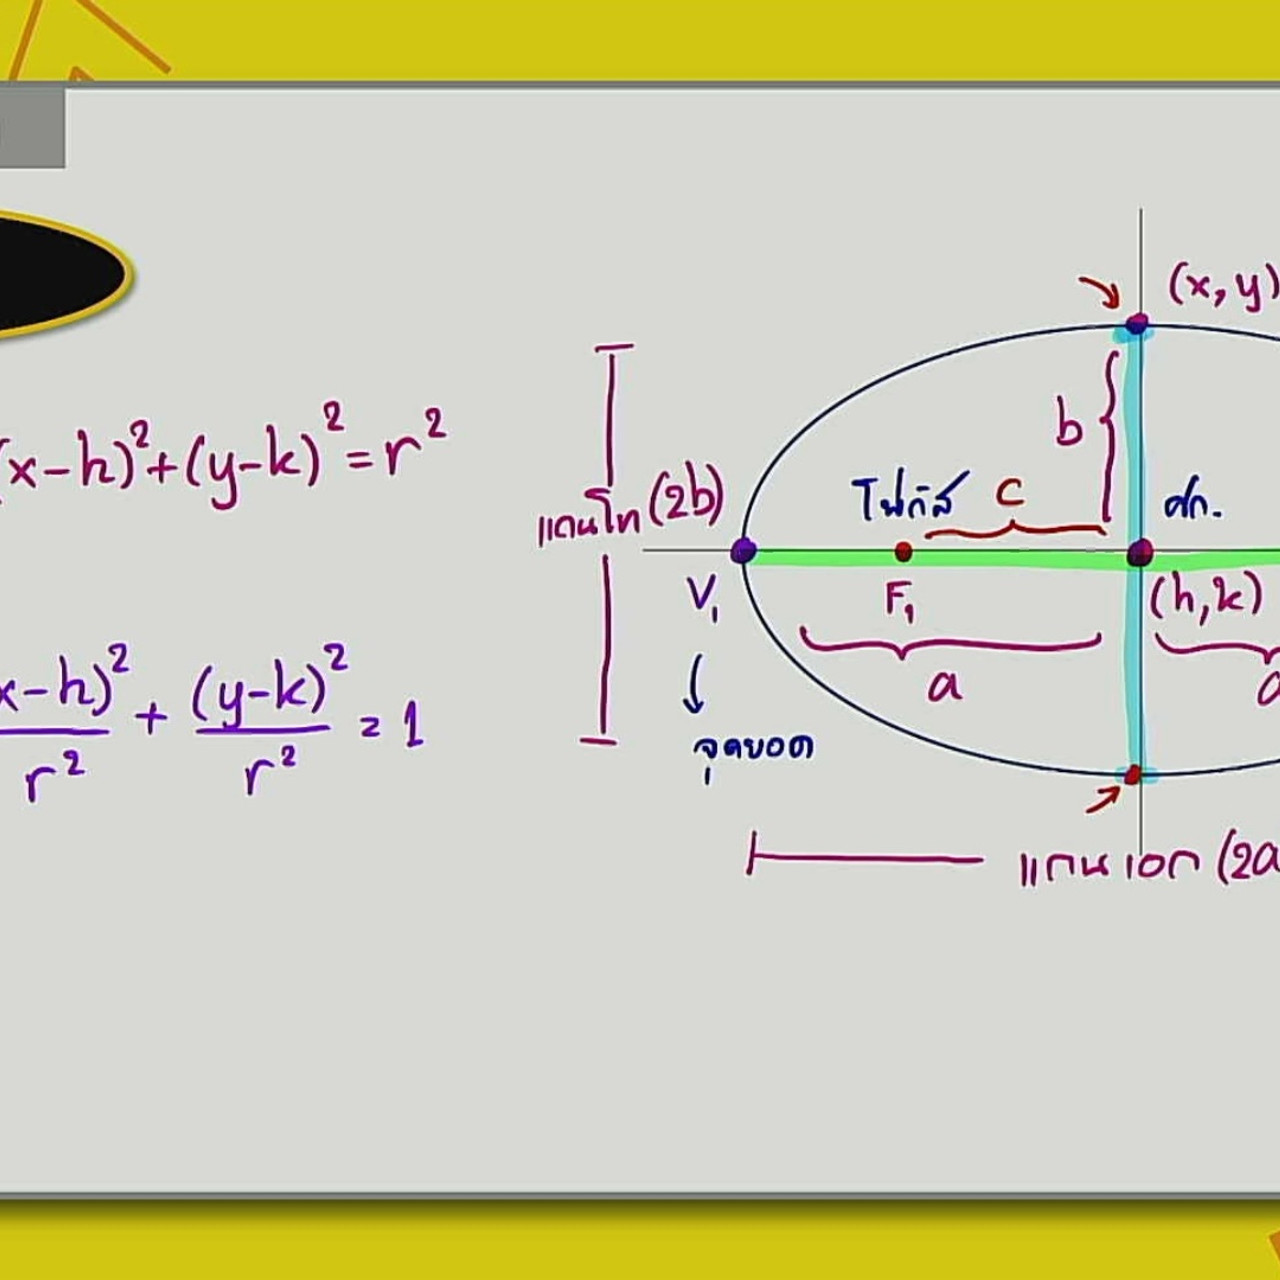 (x-h)²+(y-k)²=r²
x-h)²/r² + (y-k)²/r² = 1
(x,y)
b
แกนโท (2b)
โฟกัส
c
ศก.
V₁
F₁
(h,k)
a
จุดยอด
แกนเอก (2a